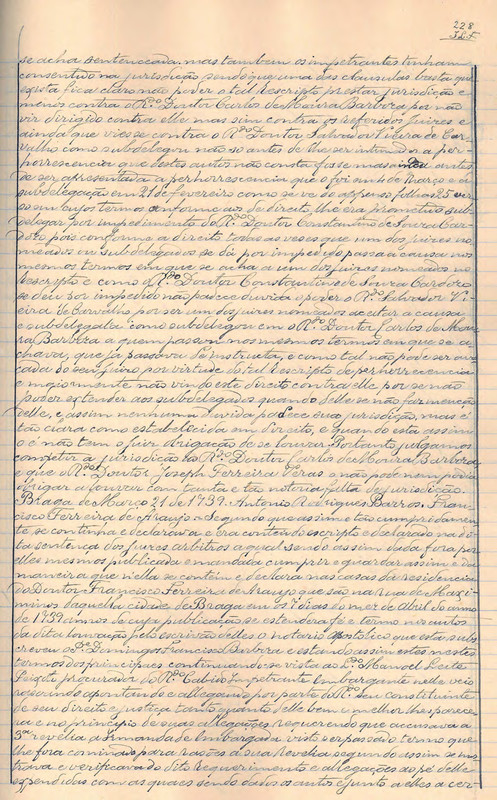 228
se acha sentenceada. mas tambem os impetrantes tinham
consentido na jurisdição sendo que uma das clausulas basta que
esta fica claro não poder o tal Rescripto prestar jurisdição e
menos contra o R.do Doutor Carlos de Moura Barboza por não
vir dirigido contra elle mas sim contra os referidos juizes e
ainda que viesse contra o R.do Doutor Salvador Vieira de Car-
valho como subdelegou não so antes de lhe ser intimada a per-
horrescencia que destes autos não consta fosse mas inda antes
de ser apresentada a perhorrescencia que o foi em 1 de Março e a
subdelegação em 21 de fevereiro como se ve do appenso folhas 25 ver
so em cujos termos conforme ao de direito lhe era permetido sub
delegar por impedimento do R.do Doutor Constantino de Souza Car-
dozo pois conforme a direito todas as vezes que um dos juizes no
meados ou subdelegados se dá por impedido passa a causa nos
mesmos termos em que se acha a um dos juizes nomeados no
Rescripto e como o R.do Doutor Constantino de Souza Cardozo
se deu por impedido não padece duvida o poder o R.do Salvador Vi-
eira de Carvalho por ser um dos juizes nomeados aceitar a causa
e subdelegalla como subdelegou em o R.do Doutor Carlos de Mou-
ra Barboza a quem passou nos mesmos termos em que se a-
chava, que já passava de instructa, e como tal não pode ser avo
cada do seu juizo por virtude do tal Rescripto de perhorrescencia
e maiormente não vindo este direito contra elle por se não
poder extender aos subdelegados quando delle se não faz menção
delle, e assim nenhuma duvida padece a sua jurisdição, mas é
tão clara como estabelecida em direito, e quando esta assim
o é não tem o juiz obrigação de se louvar. Portanto julgamos
competir a jurisdição ao R.do Doutor Carlos de Moura Barboza
e que o R.do Doutor Joseph Ferreira Peras o não pode nem podia
obrigar a louvar com tanta e tão notoria falta de jurisdição.
Braga de Março 21 de 1739. Antonio Rodrigues Barros. Fran-
cisco Ferreira de Araujo. Segundo que assim e tão cumpridamen-
te se continha e declarava e era contendo escripto e declarado na di-
ta sentença dos juizes arbitros a qual sendo assim dada fora por
elles mesmos publicada e mandada cumprir e guardar assim e da
maneira que n'ella se contem e declara nas casas da residencia
do Doutor Francisco Ferreira de Araujo que são na Rua de Maxi-
minos daquella cidade de Braga em os dias do mez de Abril do anno
de 1739 annos de cuja publicação se estendera fé e termo nos autos
da dita louvação pelo escrivão delles o notario apostolico que esta subs
creveu o P.e Domingos Francisco Barboza e estando assim estes nestes
termos dos principaes continuando se vista ao L.do Manoel Leite
Peixoto procurador do R.do Cabido Impetrante Embargante nelle veio
rasoando apontando e allegando por parte do R.do seu constituinte
de seu direito e justiça tanto quanto delle bem e melhor lhes parece-
ra e no principio de suas allegações requerendo que acusava a
3ª revelia a Irmanda de Embargada visto ser passado termo que
lhe fora cominado para razões á sua Revelia segundo assim se mos
trava e verificava do dito requerimento e allegações ao pé delle
expendidas com as quaes sendo dados os autos e junto a elles a cer-